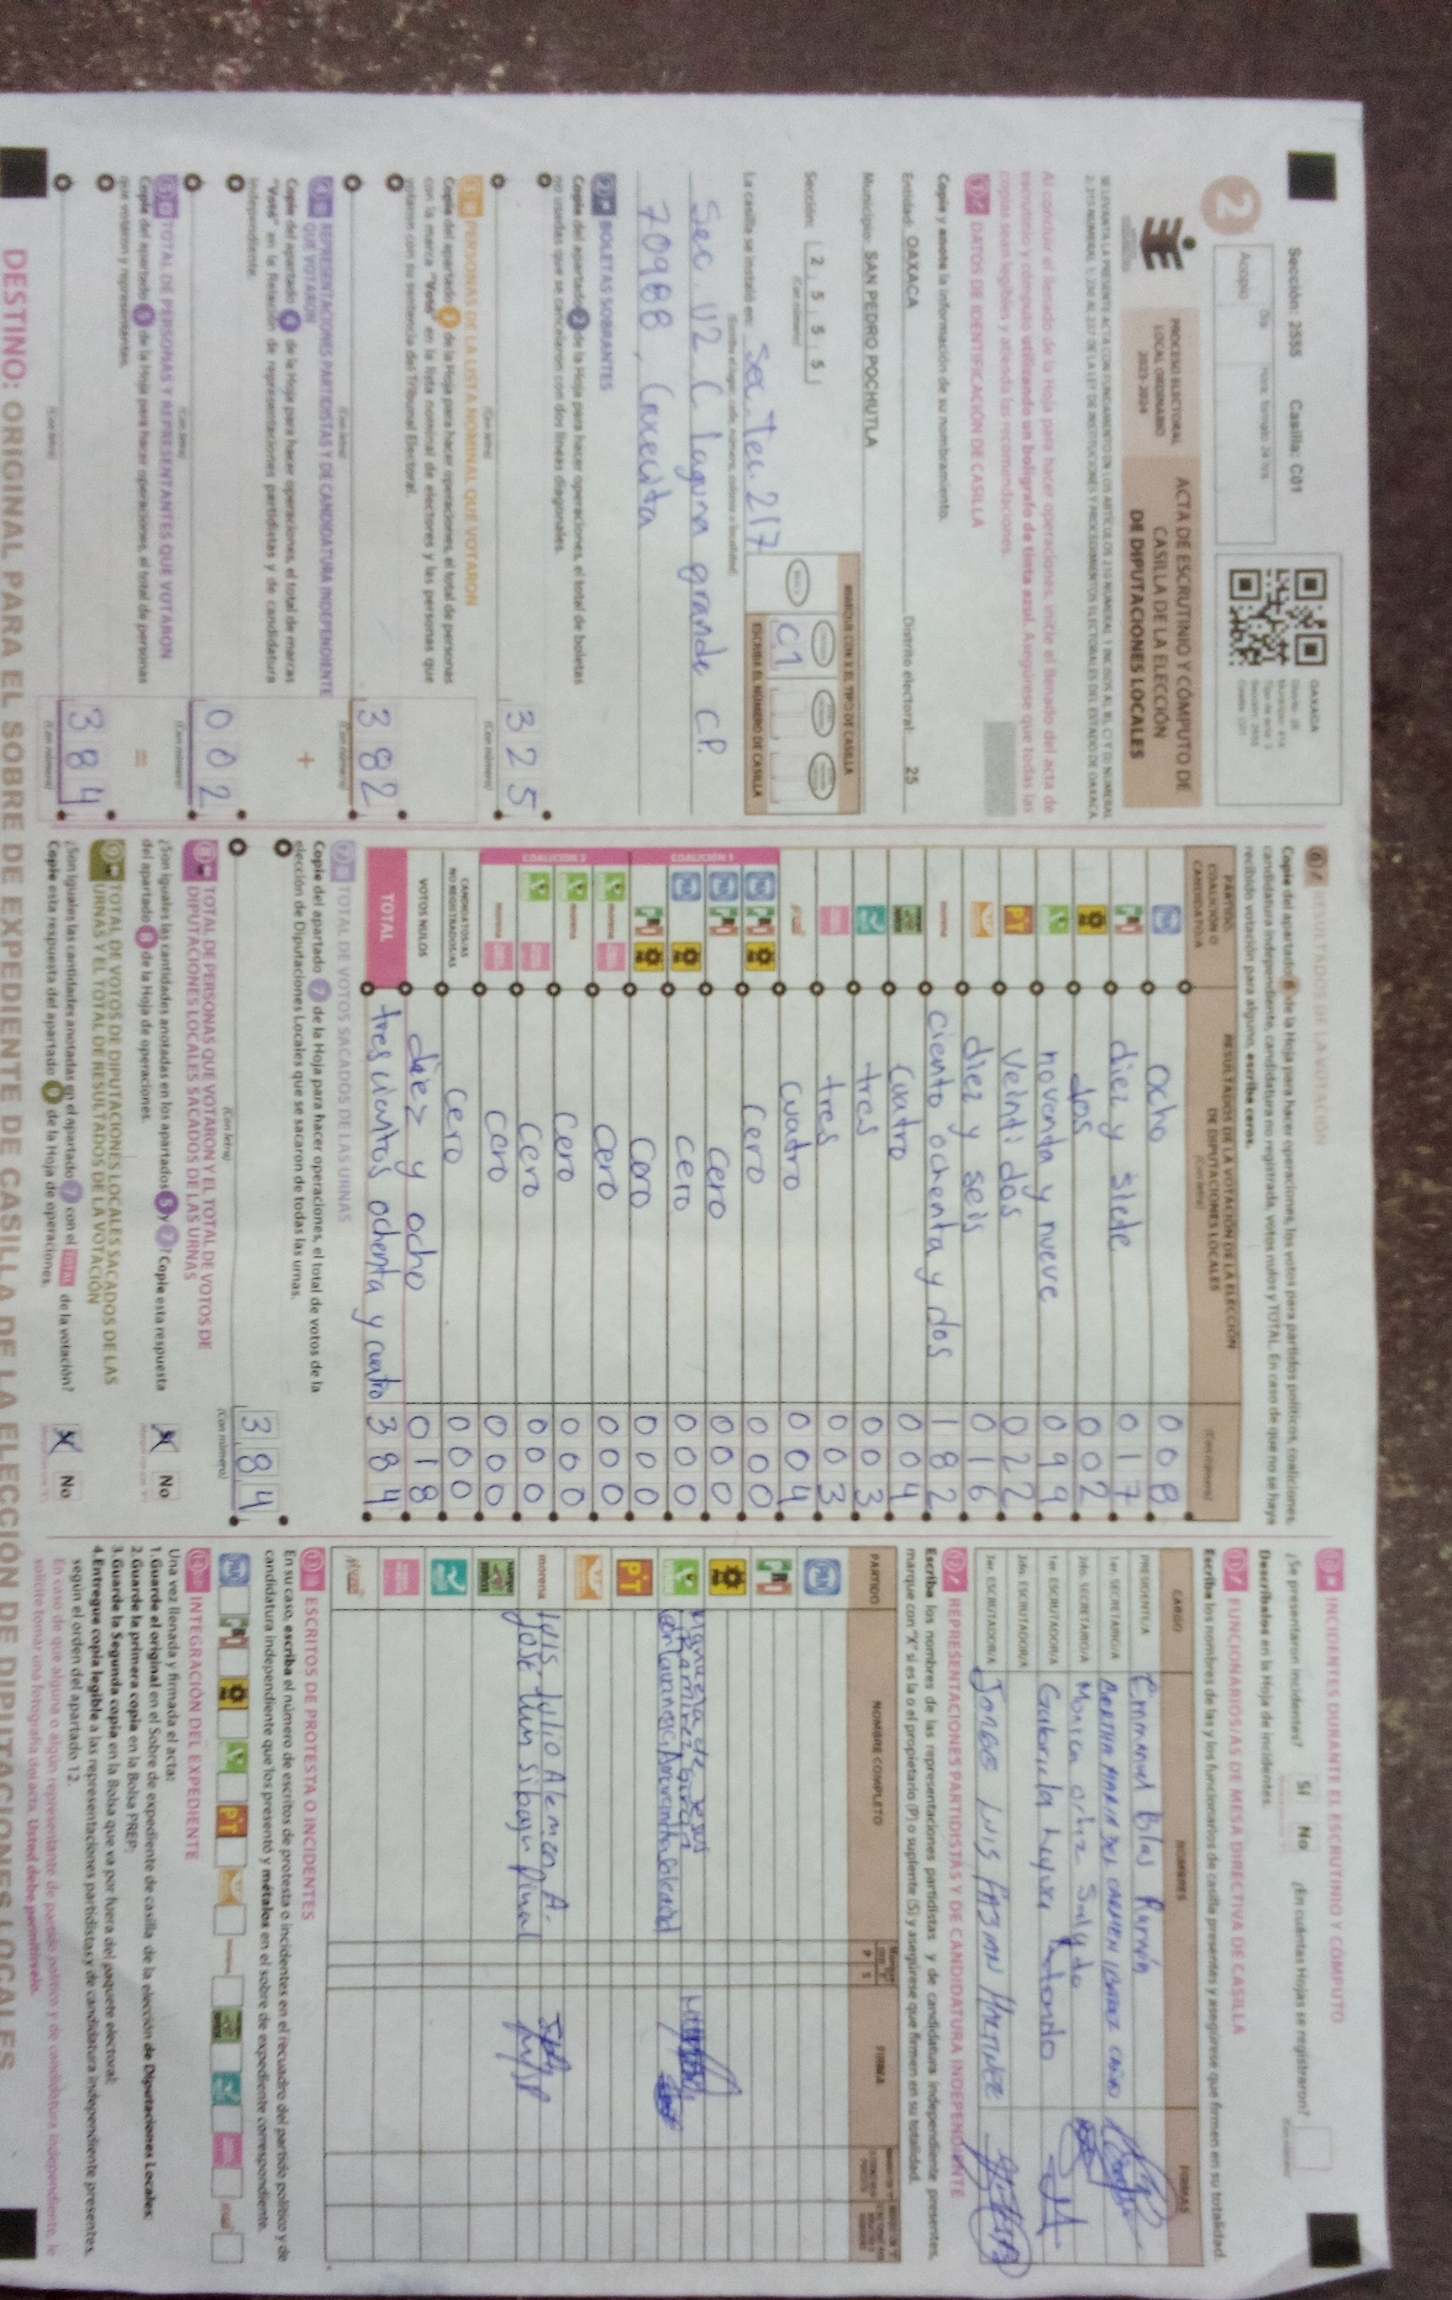 Sección: 2555 Casilla: C01
2
Acopio
OAXACA
PROCESO ELECTORAL
LOCAL ORDINARIO
2023-2024
ACTA DE ESCRUTINIO Y CÓMPUTO DE
CASILLA DE LA ELECCIÓN
DE DIPUTACIONES LOCALES
Al concluir el llenado de la Hoja para hacer operaciones, inicie el llenado del acta de
escrutinio y cómputo utilizando un bolígrafo de tinta azul. Asegúrese que todas las
copias sean legibles y atienda las recomendaciones.
1 DATOS DE IDENTIFICACIÓN DE CASILLA
Copie y anote la información de su nombramiento.
Entidad: OAXACA Distrito electoral: 25
Municipio: SAN PEDRO POCHUTLA
Sección: 2 5 5 5
(Con número)
MARQUE CON X EL TIPO DE CASILLA
ESCRIBA EL NÚMERO DE CASILLA
C1
La casilla se instaló en: Sec. Tec. 217
Sec U2 C laguna grande C.P.
70988, Crucecita
2 BOLETAS SOBRANTES
Copie del apartado 2 de la Hoja para hacer operaciones, el total de boletas
no usadas que se cancelaron con dos líneas diagonales.
(Con letra) 325 (Con número)
3 PERSONAS DE LA LISTA NOMINAL QUE VOTARON
Copie del apartado 3 de la Hoja para hacer operaciones, el total de personas
con la marca "Votó" en la lista nominal de electores y las personas que
votaron con su sentencia del Tribunal Electoral.
(Con letra) 382 (Con número)
4 REPRESENTACIONES PARTIDISTAS Y DE CANDIDATURA INDEPENDIENTE
QUE VOTARON
+
Copie del apartado 4 de la Hoja para hacer operaciones, el total de marcas
"Votó" en la Relación de representaciones partidistas y de candidatura
independiente.
(Con letra) 002 (Con número)
5 TOTAL DE PERSONAS Y REPRESENTANTES QUE VOTARON
=
Copie del apartado 5 de la Hoja para hacer operaciones, el total de personas
que votaron y representantes.
(Con letra) 384 (Con número)
6 RESULTADOS DE LA VOTACIÓN
Copie del apartado 6 de la Hoja para hacer operaciones, los votos para partidos políticos, coaliciones,
candidatura independiente, candidatura no registrada, votos nulos y TOTAL. En caso de que no se haya
recibido votación para alguno, escriba ceros.
PARTIDO, COALICIÓN O CANDIDATO/A
RESULTADOS DE LA VOTACIÓN DE LA ELECCIÓN
DE DIPUTACIONES LOCALES
(Con letra) (Con número)
PAN ocho 008
PRI diez y siete 017
dos 002
noventa y nueve 099
PT veinti dós 022
diez y seis 016
morena ciento ochenta y dos 182
cuatro 004
tres 003
tres 003
cuatro 004
COALICIÓN 1
cero 000
cero 000
cero 000
cero 000
COALICIÓN 2
cero 000
cero 000
cero 000
cero 000
CANDIDATOS/AS
NO REGISTRADOS/AS cero 000
VOTOS NULOS diez y ocho 018
TOTAL tres cientos ochenta y cuatro 384
7 TOTAL DE VOTOS SACADOS DE LAS URNAS
Copie del apartado 7 de la Hoja para hacer operaciones, el total de votos de la
elección de Diputaciones Locales que se sacaron de todas las urnas.
(Con letra) 384 (Con número)
8 TOTAL DE PERSONAS QUE VOTARON Y EL TOTAL DE VOTOS DE
DIPUTACIONES LOCALES SACADOS DE LAS URNAS
¿Son iguales las cantidades anotadas en los apartados 5 y 7? Copie esta respuesta
del apartado 8 de la Hoja de operaciones. X No
9 TOTAL DE VOTOS DE DIPUTACIONES LOCALES SACADOS DE LAS
URNAS Y EL TOTAL DE RESULTADOS DE LA VOTACIÓN
¿Son iguales las cantidades anotadas en el apartado 7 con el TOTAL de la votación?
Copie esta respuesta del apartado 9 de la Hoja de operaciones. X No
10 INCIDENTES DURANTE EL ESCRUTINIO Y CÓMPUTO
¿Se presentaron incidentes? Sí No ¿En cuántas Hojas se registraron?
Descríbalos en la Hoja de incidentes.
11 FUNCIONARIOS/AS DE MESA DIRECTIVA DE CASILLA
Escriba los nombres de las y los funcionarios de casilla presentes y asegúrese que firmen en su totalidad.
CARGO NOMBRES FIRMAS
PRESIDENTE/A Emmanuel Blas
1er. SECRETARIO/A BERTHA MARIA DEL CARMEN
2do. SECRETARIO/A Monica Ortiz Salgado
1er. ESCRUTADOR/A Gabriela
2do. ESCRUTADOR/A
3er. ESCRUTADOR/A JORGE LUIS FABIAN MARTINEZ
12 REPRESENTACIONES PARTIDISTAS Y DE CANDIDATURA INDEPENDIENTE
Escriba los nombres de las representaciones partidistas y de candidatura independiente presentes,
marque con "X" si es la o el propietario (P) o suplente (S) y asegúrese que firmen en su totalidad.
PARTIDO NOMBRE COMPLETO P S FIRMA
PAN
PRI
Manuela de Jesus
Ramirez
PT
morena Luis Julio Aleman A.
Jose Luis Sibaja Pinal
13 ESCRITOS DE PROTESTA O INCIDENTES
En su caso, escriba el número de escritos de protesta o incidentes en el recuadro del partido político y de
candidatura independiente que los presentó y métalos en el sobre de expediente correspondiente.
14 INTEGRACIÓN DEL EXPEDIENTE
Una vez llenada y firmada el acta:
1. Guarde el original en el Sobre de expediente de casilla de la elección de Diputaciones Locales;
2. Guarde la primera copia en la Bolsa PREP;
3. Guarde la Segunda copia en la Bolsa que va por fuera del paquete electoral;
4. Entregue copia legible a las representaciones partidistas y de candidatura independiente presentes,
según el orden del apartado 12.
En caso de que alguna o algún representante de partido político y de candidatura independiente, le
solicite tomar una fotografía del acta, Usted debe permitírselo.
DESTINO: ORIGINAL PARA EL SOBRE DE EXPEDIENTE DE CASILLA DE LA ELECCIÓN DE DIPUTACIONES LOCALES